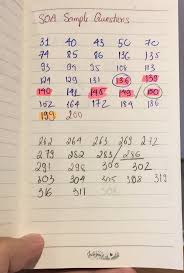 SOA Sample Questions
31 40 43 50 70
74 85 86 136 135
93 94 95 108 113
124 129 131 136 139
140 141 145 149 150
152 164 172 184 186
199 200
262 264 265 269 272
279 282 283 286
291 296 300 302
303 304 305 308 313
316 311